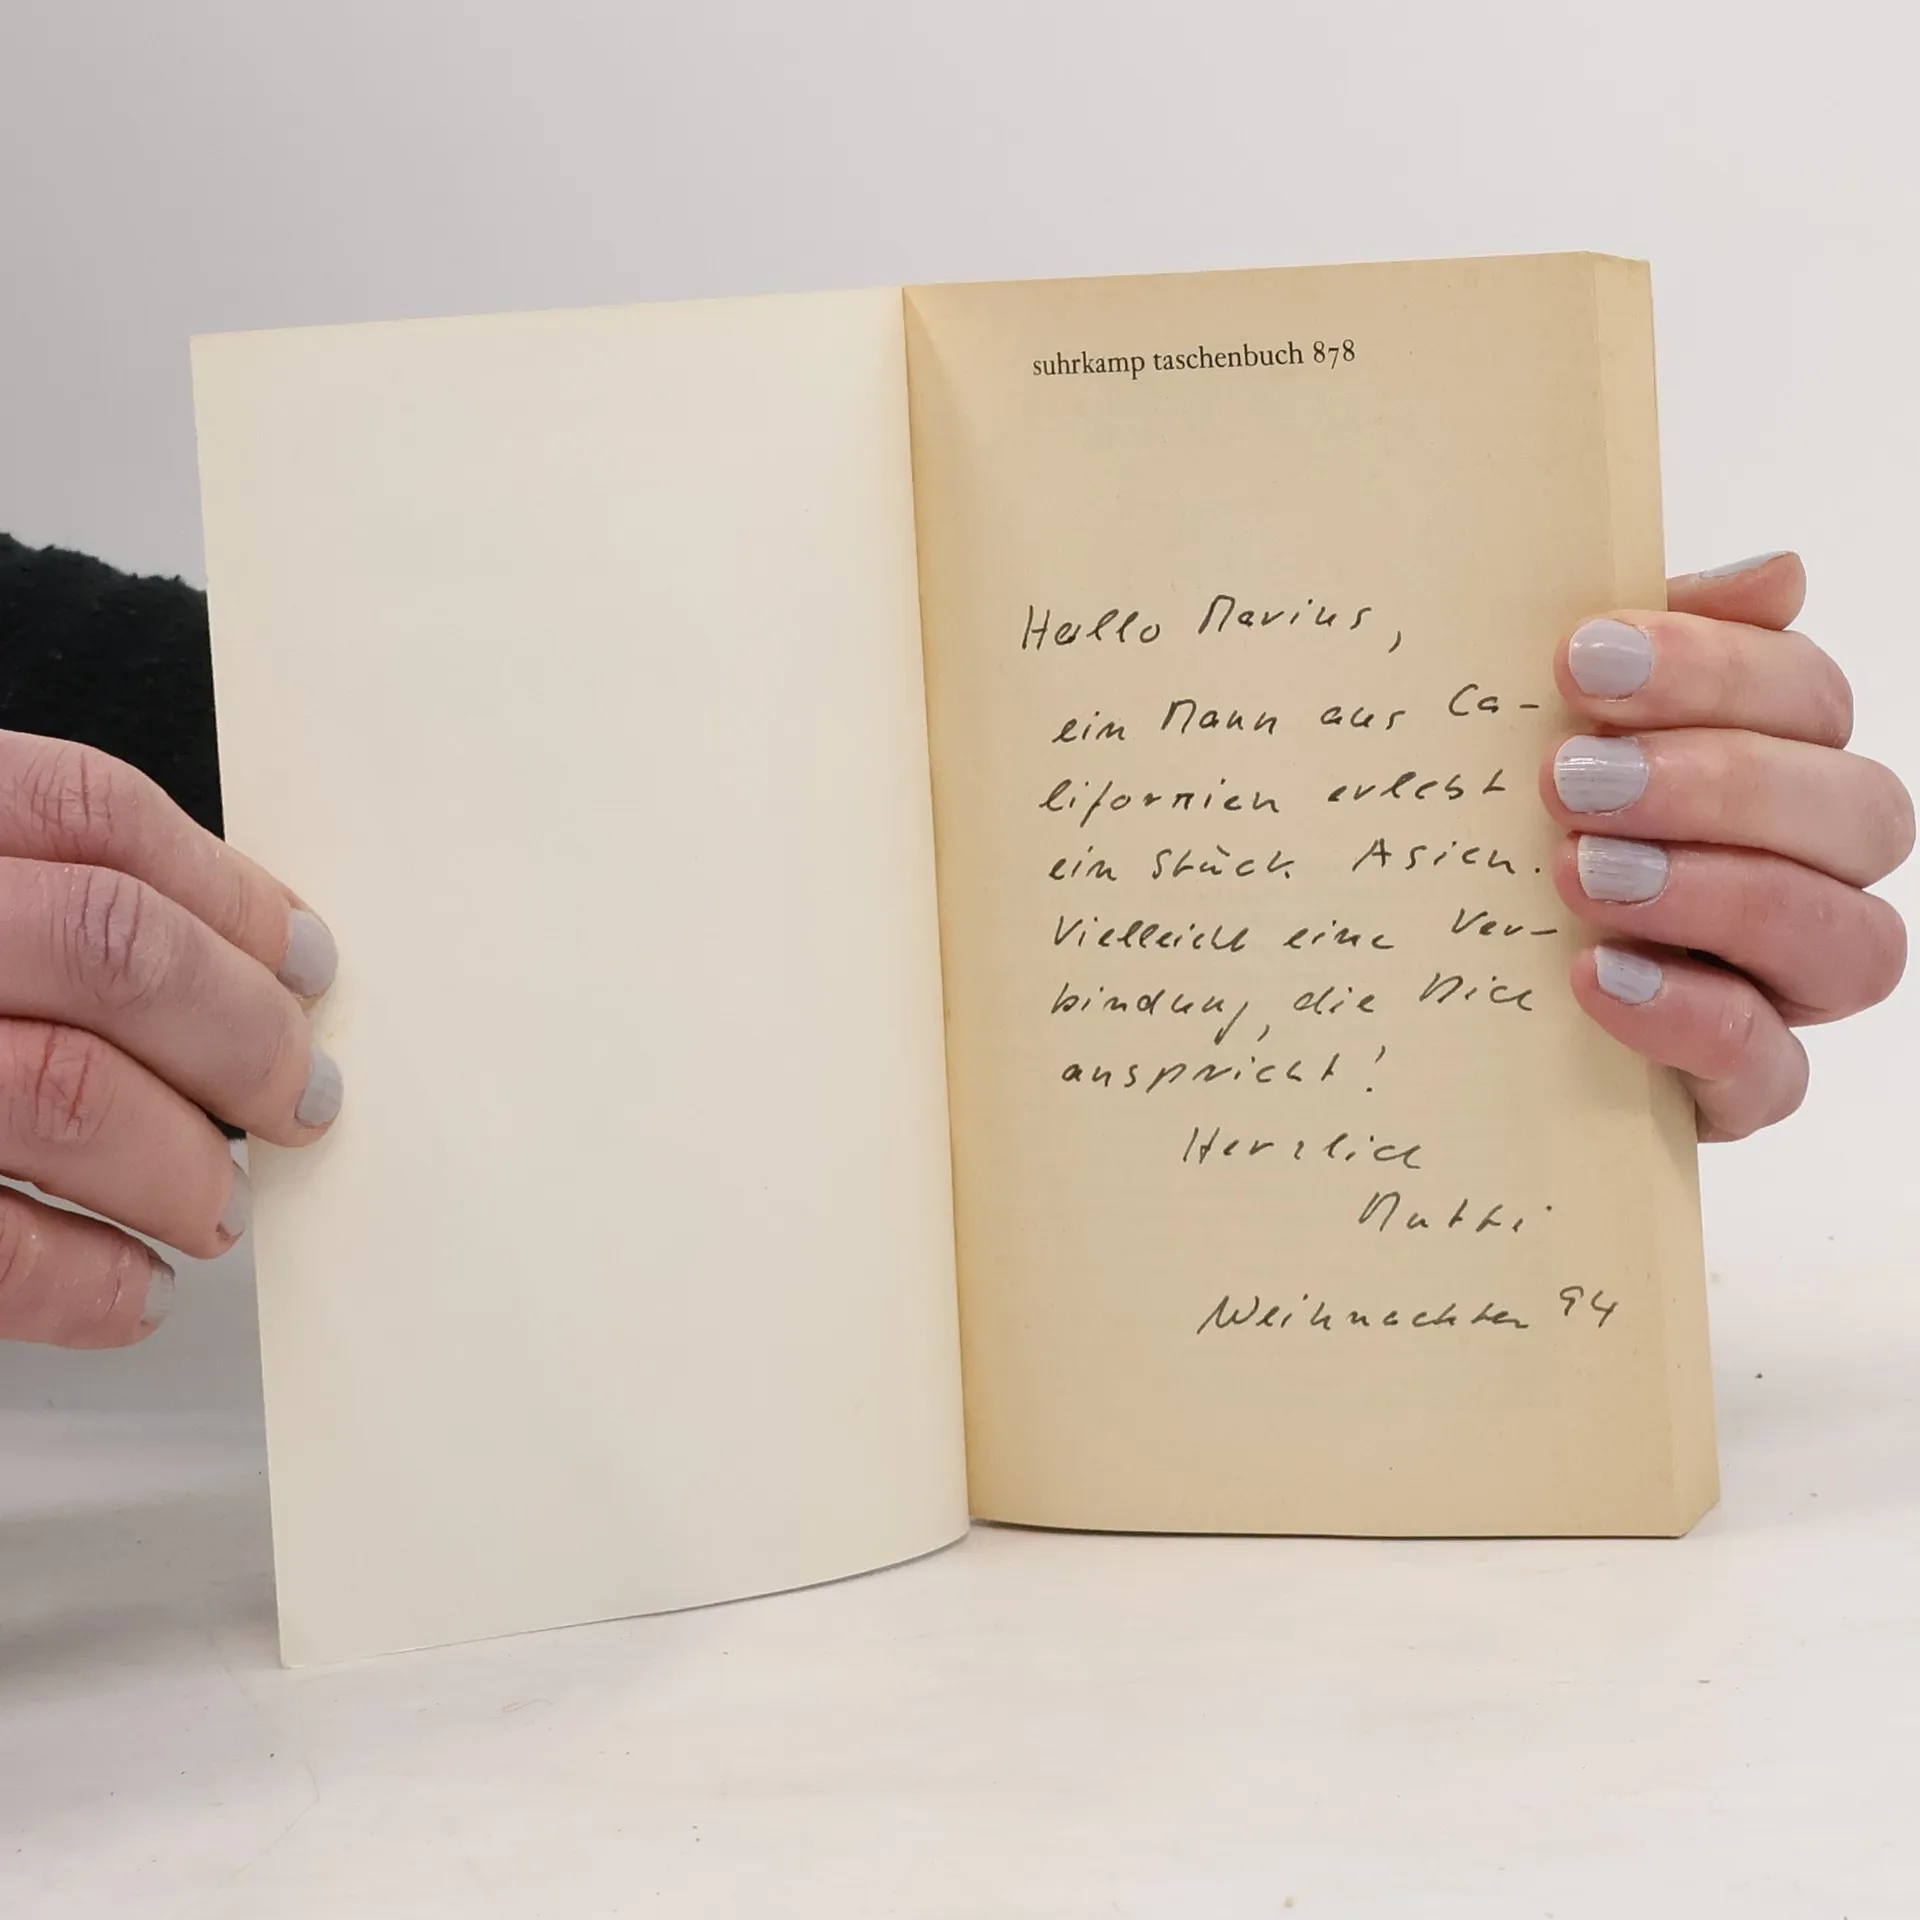 suhrkamp taschenbuch 878
Hallo Marius,
ein Mann aus Ca-
lifornien erlebt
ein Stück Asien.
Vielleicht eine Ver-
bindung, die Dich
anspricht!
Herzlich
Mutti
Weihnachten 94